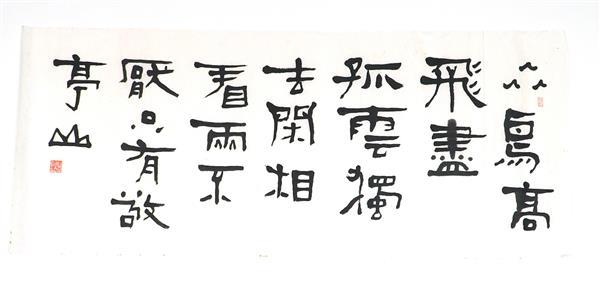 众鳥高
飛盡
孤雲獨
去閑相
看兩不
厭只有敬
亭山